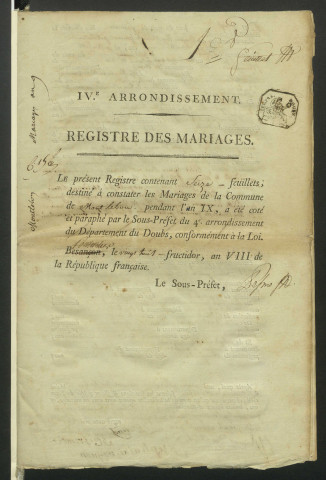 IV.e ARRONDISSEMENT.
REGISTRE DES MARIAGES.
Le présent Registre contenant Seize feuillets,
destiné à constater les Mariages de la Commune
de pendant l'an IX, a été coté
et paraphé par le Sous-Préfet du 4.e arrondissement
du Département du Doubs, conformément à la Loi.
Besançon, le vingt huit fructidor, an VIII de
la République française.
Le Sous-Préfet,